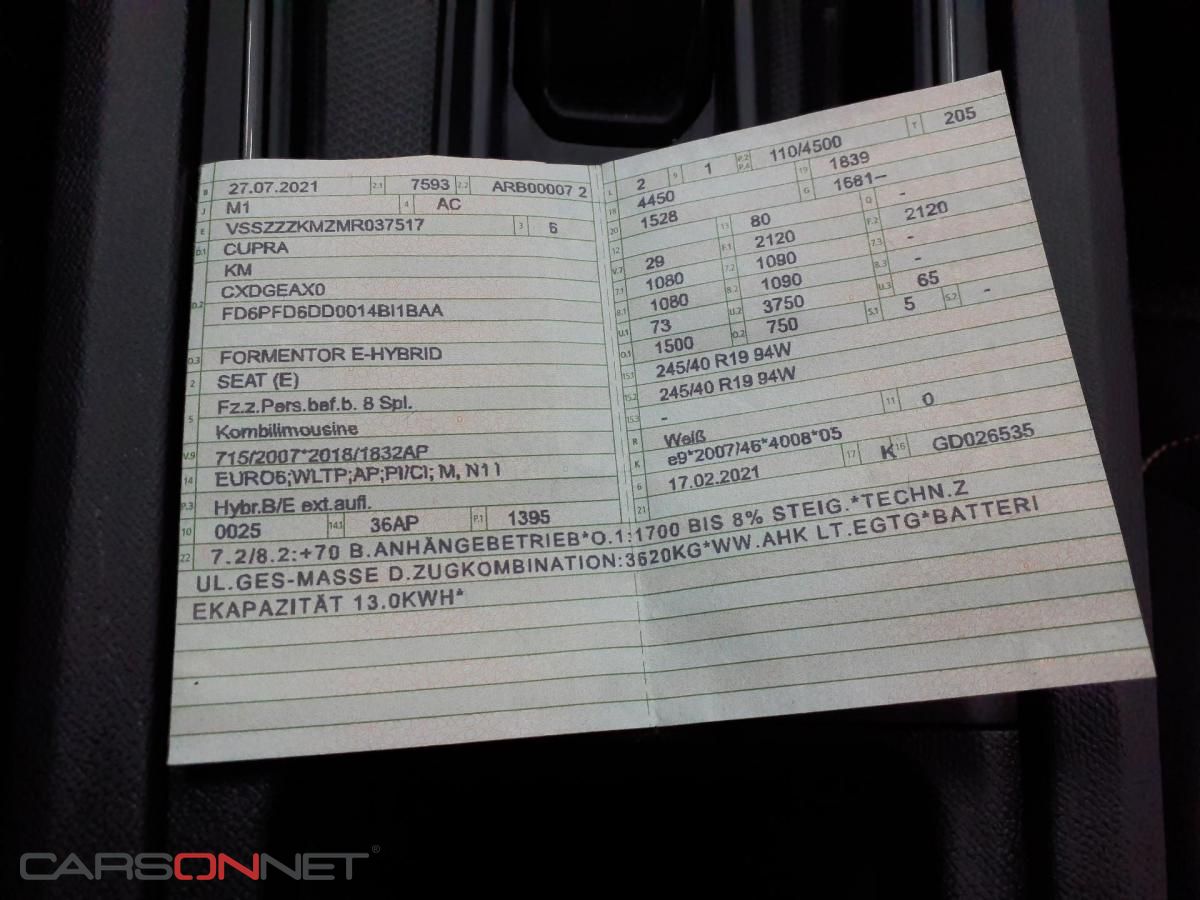 B 27.07.2021 2.1 7593 2.2 ARB00007 2
J M1 4 AC
E VSSZZZKMZMR037517 3 6
D.1 CUPRA
KM
CXDGEAX0
D.2 FD6PFD6DD0014BI1BAA
D.3 FORMENTOR E-HYBRID
2 SEAT (E)
5 Fz.z.Pers.bef.b. 8 Spl.
Kombilimousine
V.9 715/2007*2018/1832AP
14 EURO6;WLTP;AP;PI/CI; M, N1 I
P.3 Hybr.B/E ext.aufl.
10 0025 14.1 36AP P.1 1395
L 2 9 1 P.2 P.4 110/4500 T 205
18 4450 19 1839
20 1528 G 1681–
12 13 80 Q -
V.7 29 F.1 2120 F.2 2120
7.1 1080 7.2 1090 7.3 -
8.1 1080 8.2 1090 8.3 -
U.1 73 U.2 3750 U.3 65
O.1 1500 O.2 750 S.1 5 S.2 -
15.1 245/40 R19 94W
15.2 245/40 R19 94W
15.3 -
R Weiß 11 0
K e9*2007/46*4008*05
6 17.02.2021 17 K 16 GD026535
21
22 7.2/8.2:+70 B.ANHÄNGEBETRIEB*O.1:1700 BIS 8% STEIG.*TECHN.Z
UL.GES-MASSE D.ZUGKOMBINATION:3620KG*WW.AHK LT.EGTG*BATTERI
EKAPAZITÄT 13.0KWH*
CARSONNET®